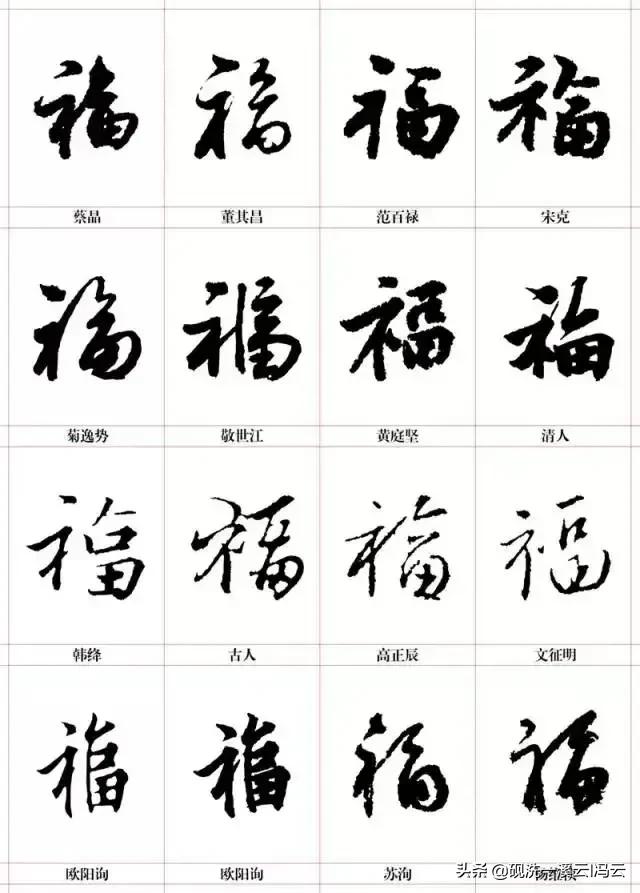 福 福 福 福
蔡晶 董其昌 范百禄 宋克
福 福 福 福
菊逸势 敬世江 黄庭坚 清人
福 福 福 福
韩绛 古人 高正辰 文征明
福 福 福 福
欧阳询 欧阳询 苏洵
头条 @砚洗一溪云|冯云